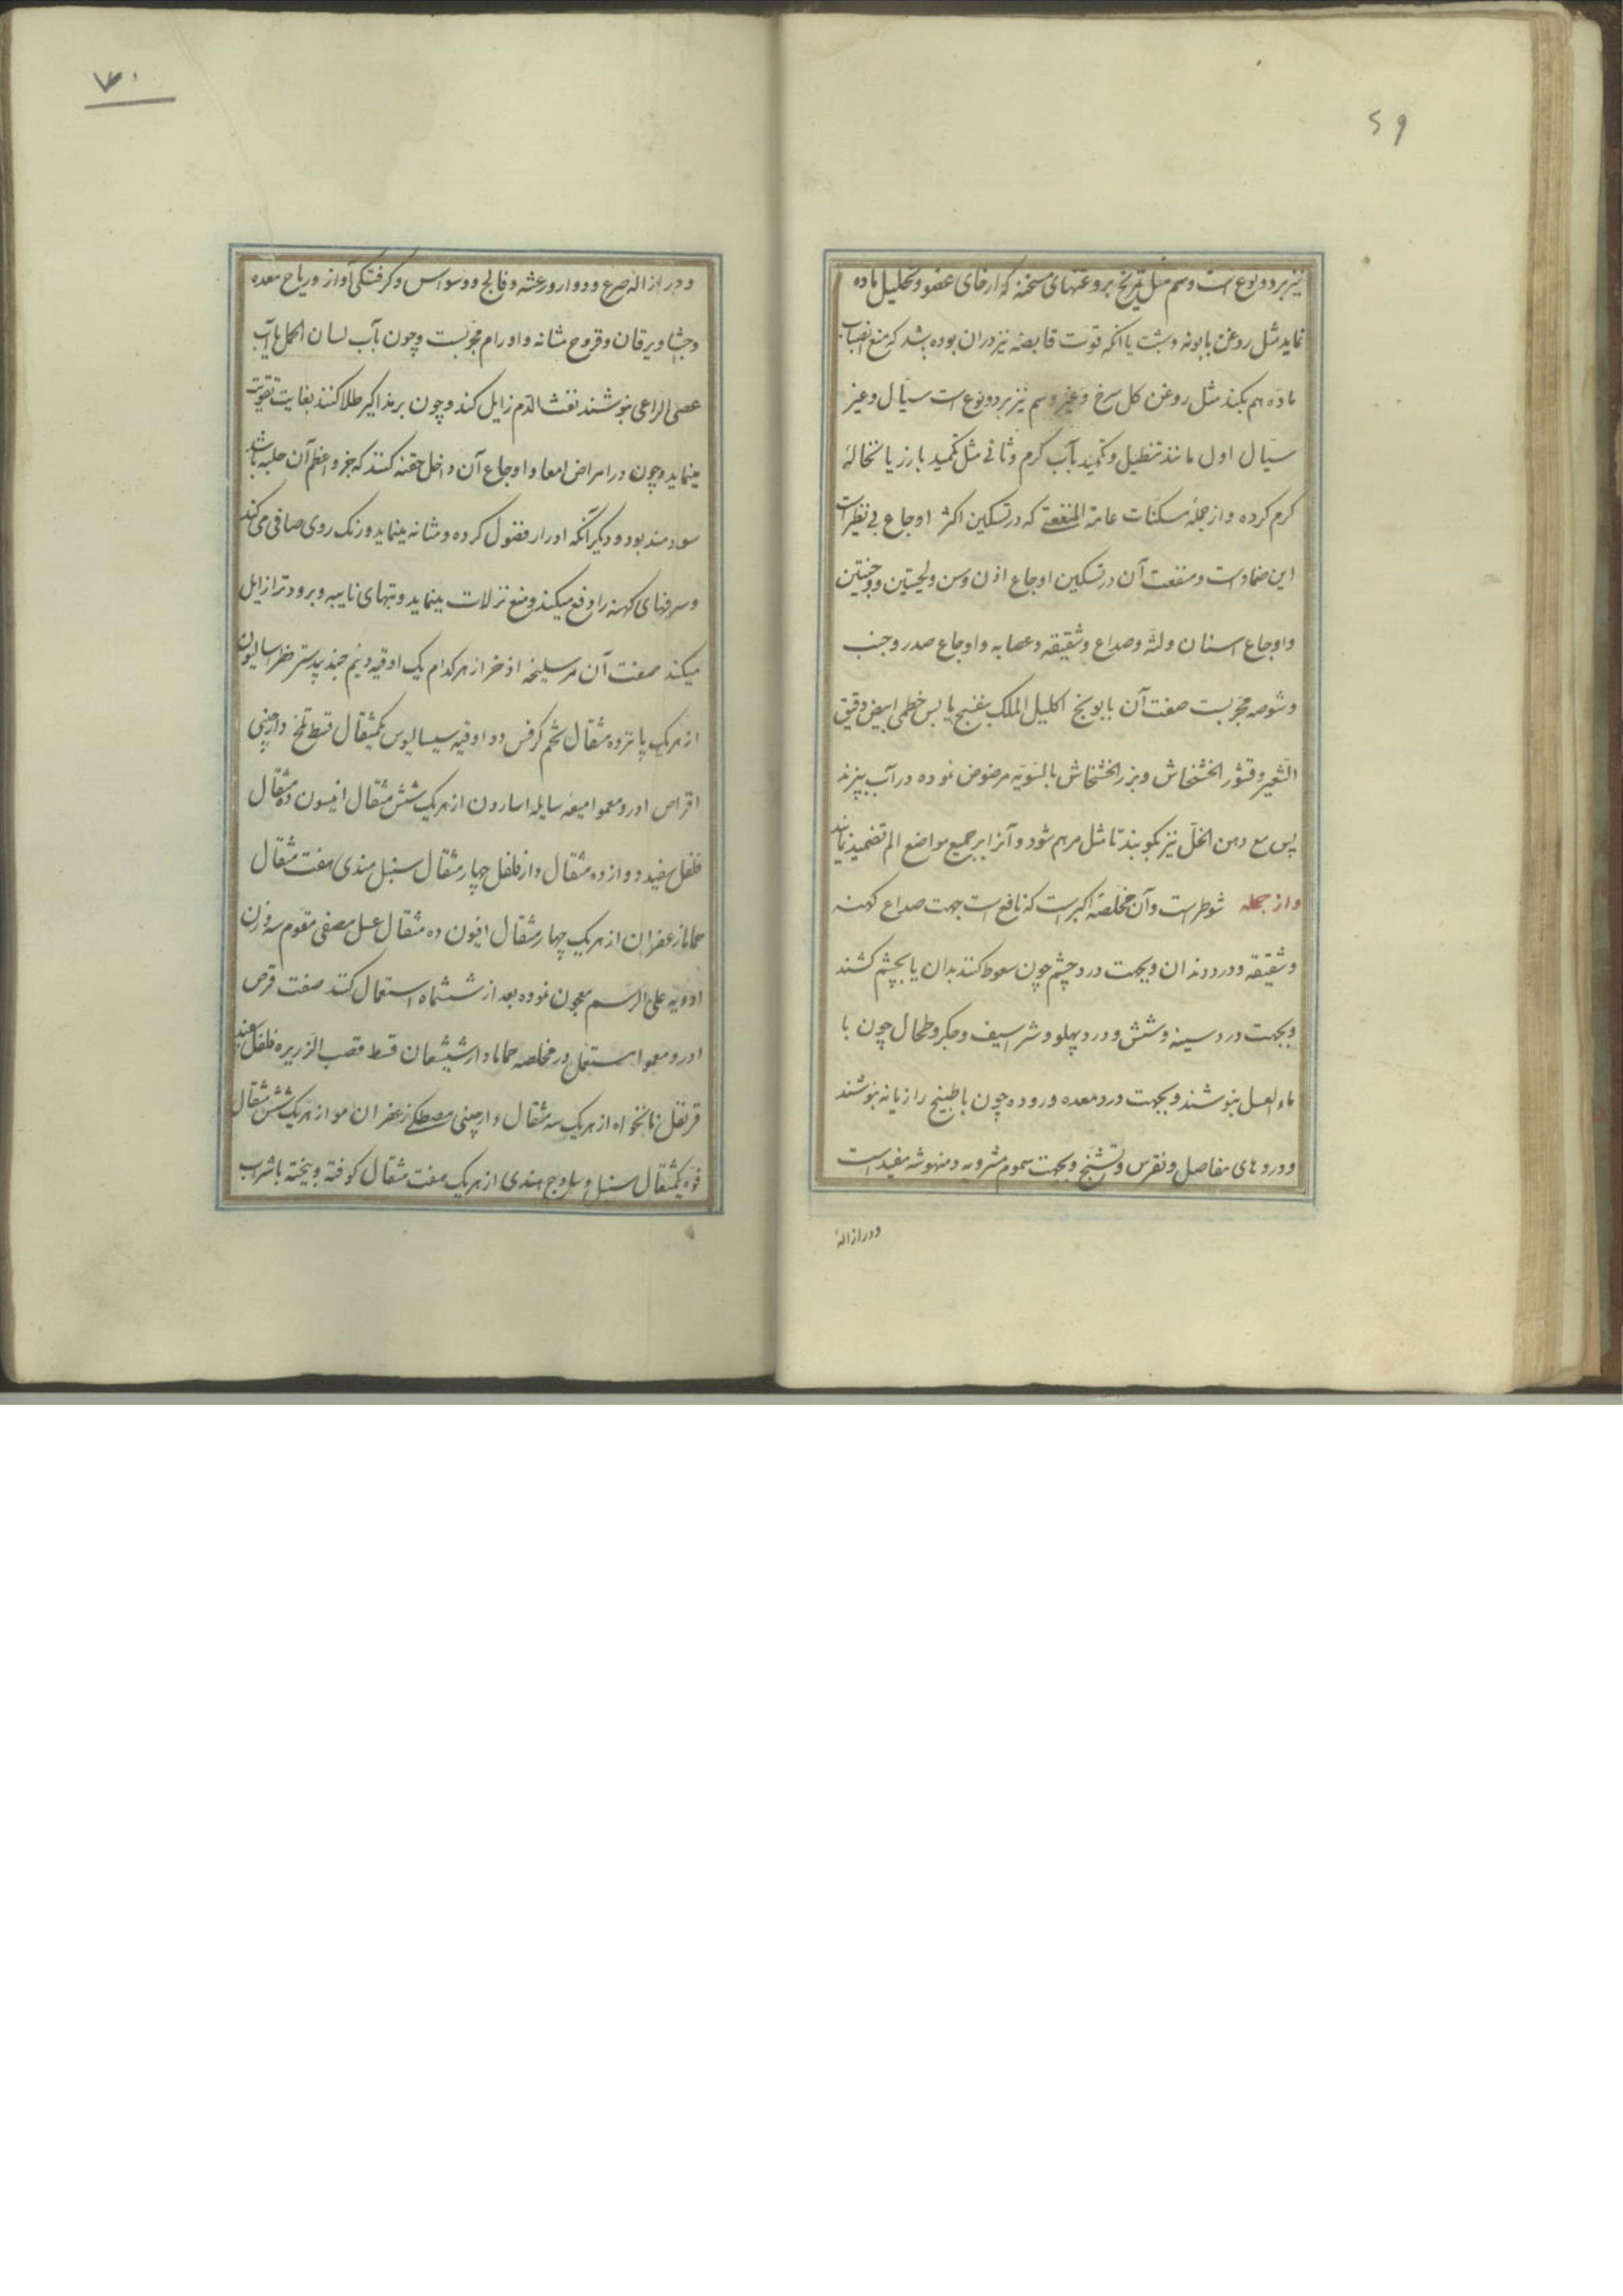 ۶۹
نیز بر دو نوع است دسم مثل تمریخ بروغنهای مسخنه که ارخای عضو و تحلیل ماده
نماید مثل روغن بابونه و شبت یا انکه قوت قابضه نیز دران بوده باشد که منع انصباب
ماده هم بکند مثل روغن کل سرخ و غیر دسم نیز بر دو نوع است سیال و غیر
سیال اول مانند تنطیل و تکمید بآب کرم و ثانی مثل تکمید بارز یا نخالهٔ
کرم کرده و از جملهٔ مسکنات عامة المنفعة که در تسکین اکثر اوجاع بی نظیر است
این ضمادست و منفعت آن در تسکین اوجاع اذن و سن و لحیتین و وجنتین
و اوجاع اسنان و لثه و صداع و شقیقه و عصابه و اوجاع صدر و جنب
و شوصه مجربست صفت آن بابونج اکلیل الملک بنفسج یابس خطمی ابیض دقیق
الشعیر و قشور الخشخاش و بزر الخشخاش بالسویه مرضوض نموده در آب بپزند
پس مع دهن الخل نیز بکوبند تا مثل مرهم شود و آنرا بر جمیع مواضع الم تضمید نمایند
و از جمله شوطراست و آن مخلصهٔ اکبر است که نافع است جهت صداع کهنه
و شقیقه و درد دندان و بجهت درد چشم چون سعوط کنند بدان یا بچشم کشند
و بجهت درد سینه و شش و درد پهلو و شراسیف و جکر و طحال چون با
ماء العسل بنوشند و بجهت درد معده و روده چون با طبیخ رازیانه بنوشند
و دردهای مفاصل و نقرس و تشنج و بجهت سموم مشروبه و منهوشه مفید است
و در ازالهٔ
۷۰
و در ازالهٔ صرع و دوار و رعشه و فالج و وسواس و کرفتکی آواز و ریاح معده
و جشا و یرقان و قروح مثانه و اورام مجربست و چون بآب لسان الحمل یا آب
عصی الراعی بنوشند نفث الدم زایل کند و چون بر مذاکیر طلا کنند بغایت تقویت
مینماید و چون در امراض امعا و اوجاع آن داخل حقنه کنند که جزو اعظم آن حلبه باشد
سودمند بود و دیکر آنکه ادرار فضول کرده و مثانه مینماید و رنک روی صافی می کند
و سرفهای کهنه را دفع میکند و منع نزلات مینماید و تبهای نایبه و برودترا زایل
میکند صفت آن مر سلیخه اذخر از هر کدام یک اوقیه و نیم جند بیدستر فطراسالیون
از هر یک پانزده مثقال تخم کرفس دو اوقیه سیسالیوس یکمثقال قسط تلخ دارچینی
اقراص اندروخموا میعه سایله اسارون از هر یک شش مثقال انیسون ده مثقال
فلفل سفید دوازده مثقال دار فلفل چهار مثقال سنبل هندی هفت مثقال
حماما زعفران از هر یک چهار مثقال افیون ده مثقال عسل مصفی مقوم سه وزن
ادویه علی الرسم معجون نموده بعد از ششماه استعمال کنند صفت قرص
اندروخموا مستعمل در مخلصه حماما دارشیشعان قسط قصب الزریره فلفل سفید
قرنفل نانخواه از هر یک سه مثقال دارچینی مصطکی زعفران مو از هر یک شش مثقال
فوه یکمثقال سنبل و ساذج هندی از هر یک هفت مثقال کوفته و بیخته با شراب